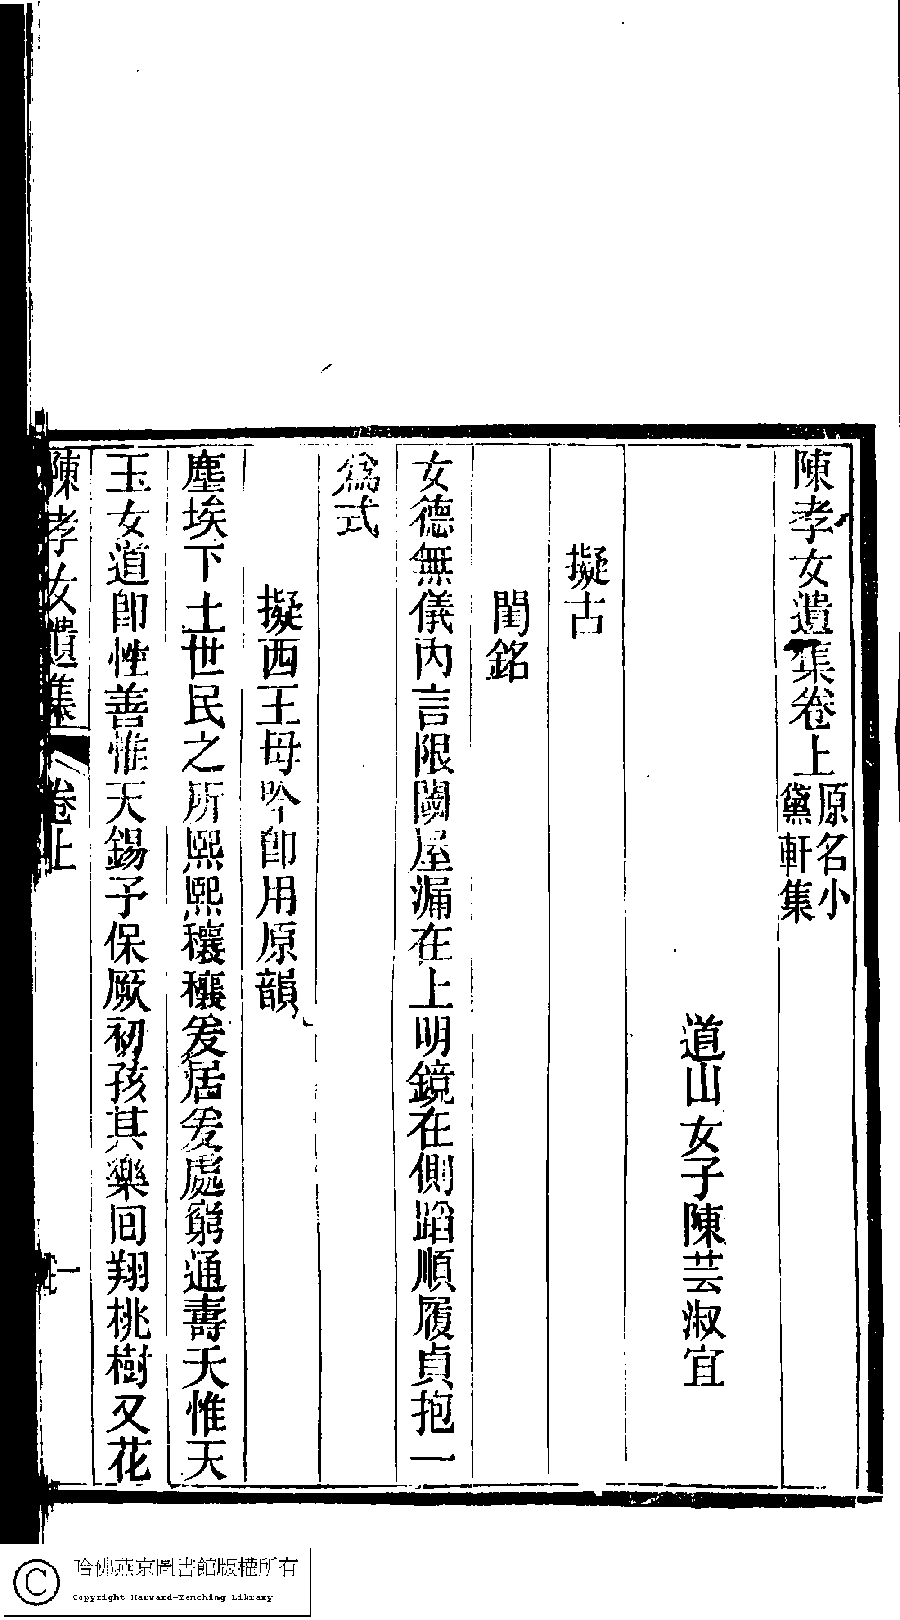 陳孝女遺集卷上
原名小
黛軒集
道山女子陳芸淑宜
擬古
閨銘
女德無儀內言限閾屋漏在上明鏡在側蹈順履貞抱一
爲式
擬西王母吟卽用原韻
塵埃下土世民之所熙熙穰穰爰居爰處窮通壽夭惟天
玉女道卽性善惟天錫予保厥初孩其樂回翔桃樹又花
陳孝女遺集
卷上
一
哈佛燕京圖書館版權所有
Copyright Harvard-Yenching Library